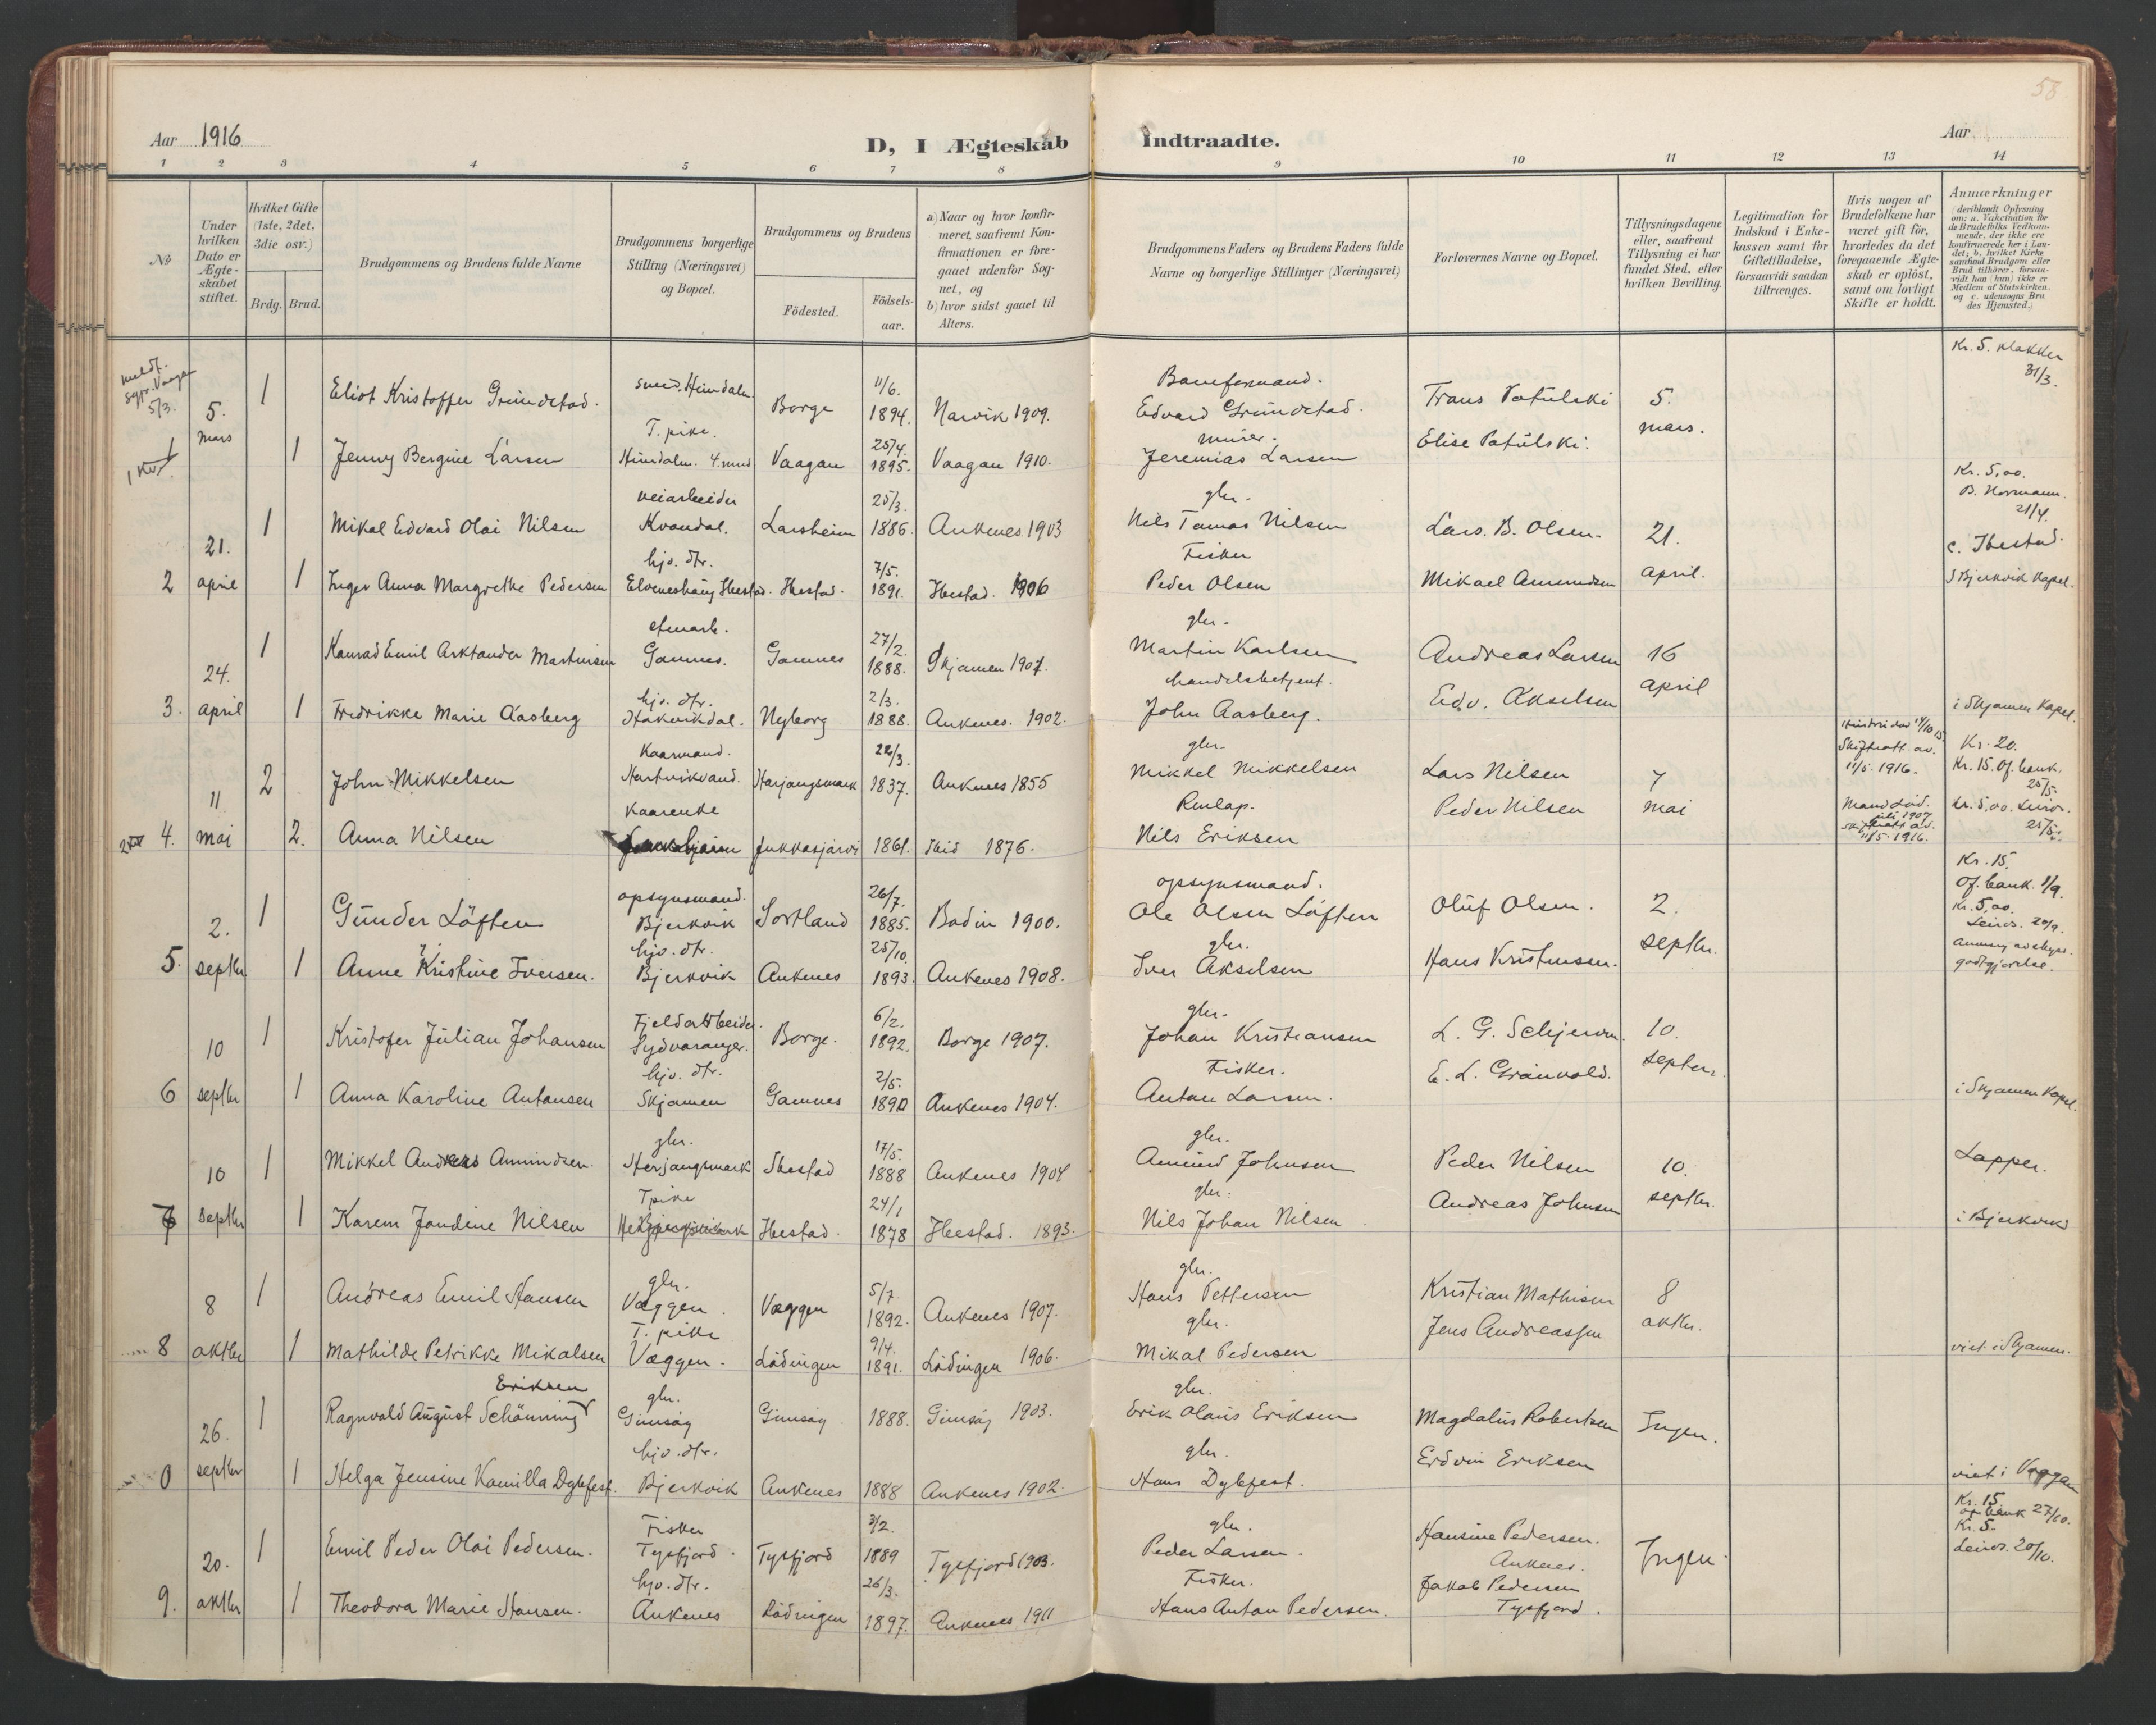 58
Aar 1916 D, I Ægteskab Indtraadte. Aar
1 2 3 4 5 6 7 8 9 10 11 12 13 14
No
Under hvilken Dato er Ægteskabet stiftet.
Hvilket Gifte (1ste, 2det, 3die osv.)
Brdg. Brud.
Brudgommens og Brudens fulde Navne
Brudgommens borgerlige Stilling (Næringsvei) og Bopæl.
Brudgommens og Brudens
Födested.
Födsels-aar.
a) Naar og hvor konfirmeret, saafremt Konfirmationen er foregaaet udenfor Sognet, og
b) hvor sidst gaaet til Alters.
Brudgommens Faders og Brudens Faders fulde Navne og borgerlige Stillinger (Næringsvei)
Forlovernes Navne og Bopæl.
Tillysningsdagene eller, saafremt Tillysning ei har fundet Sted, efter hvilken Bevilling.
Legitimation for Indskud i Enkekassen samt for Giftetilladelse, forsaavidt saadan tiltrænges.
Hvis nogen af Brudefolkene har været gift för, hvorledes da det foregaaende Ægteskab er oplöst, samt om lovligt Skifte er holdt.
Anmærkninger (deriblandt Oplysning om: a. Vakcination for de Brudefolks Vedkommende, der ikke ere konfirmerede her i Landet; b. hvilket Kirkesamfund Brudgom eller Brud tilhörer, forsaavidt han (hun) ikke er Medlem af Statskirken. og c. udensogns Brudes Hjemsted.)
5/3. 5. 1 Eliot Kristoffer Grundstad. smed. 11/6. Borge 1894. Narvik 1909. Edvard Grundstad. Frans Patulski 5. Kr. 5. 31/3.
mars 1 Jenny Bergine Larsen T. pike. 25/4. Vaagan 1895. Vaagan 1910. murer. Jeremias Larsen Elise Patulski. mars.
21. 1 Mikal Edvard Olai Nilsen veiarbeider Kvandal. 25/3. 1886. Ankenes 1903 gbr. Nils Tomas Nilsen Lars. B. Olsen. 21. Kr. 5,00. B. Normann. 21/4.
2 april 1 Inger Anna Margrethe Pedersen hjv. dtr. Ibestad. 7/5. 1891. Ibestad. 1906 Fisker Peder Olsen Mikael Amundsen april. c. Ibestad. I Bjerkvik Kapel.
24. 1 Konrad Emil Arktander Martinsen Gamnes. Gamnes 27/2. 1888. Skjomen 1907. gbr. Martin Karlsen Andreas Larsen 16
3. april 1 Fredrikke Marie Aasberg hjv. dtr. Haakvikdal. Nyborg 2/3. 1888. Ankenes. 1902. handelsbetjent. John Aasberg. Edv. Akselsen april i Skjomen Kapel.
11 2 John Mikkelsen Kaarmand. Hartvikvand. Harjangsmark 22/3. 1837. Ankenes 1855 gbr. Mikkel Mikkelsen Lars Nilsen 7 Skifteatt. av. 11/5. 1916. Kr. 20. Kr. 15. Of. bank. 25/5.
4. mai 2. Anna Nilsen Jukkasjärvi 1861. Ibid 1876. Renlap. Nils Eriksen Peder Nilsen mai Mand död. juli 1907 Skifteatt. av. 11/5. 1916. Kr. 5,00. 25/5.
2. 1 Gunder Löften opsynsmand. Bjerkvik Sortland 26/7. 1885. Bodin 1900. opsynsmand. Ole Olsen Löften Oluf Olsen. 2. Kr. 15. Of. bank. 1/9. Kr. 5,00.
5. septbr 1 Anne Kristine Iversen. hjv. dtr. Bjerkvik Ankenes 25/10. 1893. Ankenes 1908. gbr. Iver Akselsen Hans Kristensen. septbr. godtgjörelse.
10 1 Kristofer Julian Johansen Fjeldarbeider. Sydvaranger. Borge. 6/2. 1892. Borge 1907. gbr. Johan Kristiansen 10.
6 septbr 1 Anna Karoline Antonsen hjv. dtr. Skjomen Gamnes 2/5. 1890 Ankenes 1904. Fisker. Anton Larsen. E. L. Grönvold. septbr. i Skjomen Kapel.
10 1 Mikkel Andreas Amundsen. gbr. Herjangsmark Ibestad 17/5. 1888 Ankenes 1904 gbr. Amund Johnsen Peder Nilsen 10. Lapper.
7 septbr 1 Karen Jondine Nilsen T pike Ibestad. 24/1 1878 Ibestad. 1893. gbr. Nils Johan Nilsen Andreas Johnsen septbr. i Bjerkvik
8 1 Andreas Emil Hansen gbr. Væggen. Væggen 5/7. 1892. Ankenes 1907. gbr. Hans Pettersen Kristian Mathisen 8
8 oktbr 1 Mathilde Petrikke Mikalsen T. pike Væggen. Lödingen 9/4. 1891. Lödingen 1906. gbr. Mikal Pedersen Jens Andreassen oktbr. viet i Skjomen.
26. 1 Ragnvald August Schönning Eriksen gbr. Gimsöy Gimsöy 1888. Gimsöy 1903. gbr. Erik Olaus Eriksen Magdalus Robertsen Ingen.
0 septbr 1 Helga Jensine Kamilla Dybfest. hjv. dtr. Bjerkvik Ankenes 1888 Ankenes 1902. gbr. Hans Dybfest. Edvin Eriksen viet i Vaagan
20. 1 Emil Peder Olai Pedersen. Fisker Tysfjord. Tysfjord 3/2. 1889 Tysfjord 1903. gbr. Peder Larsen. Hansine Pedersen. Ankenes. Ingen. Kr. 15. of. bank 27/10. Kr. 5. 20/10.
9. oktbr 1 Theodora Marie Hansen. hjv. dtr. Ankenes Lödingen 26/3. 1897. Ankenes 1911 Fisker. Hans Anton Pedersen. Jakob Pedersen Tysfjord.